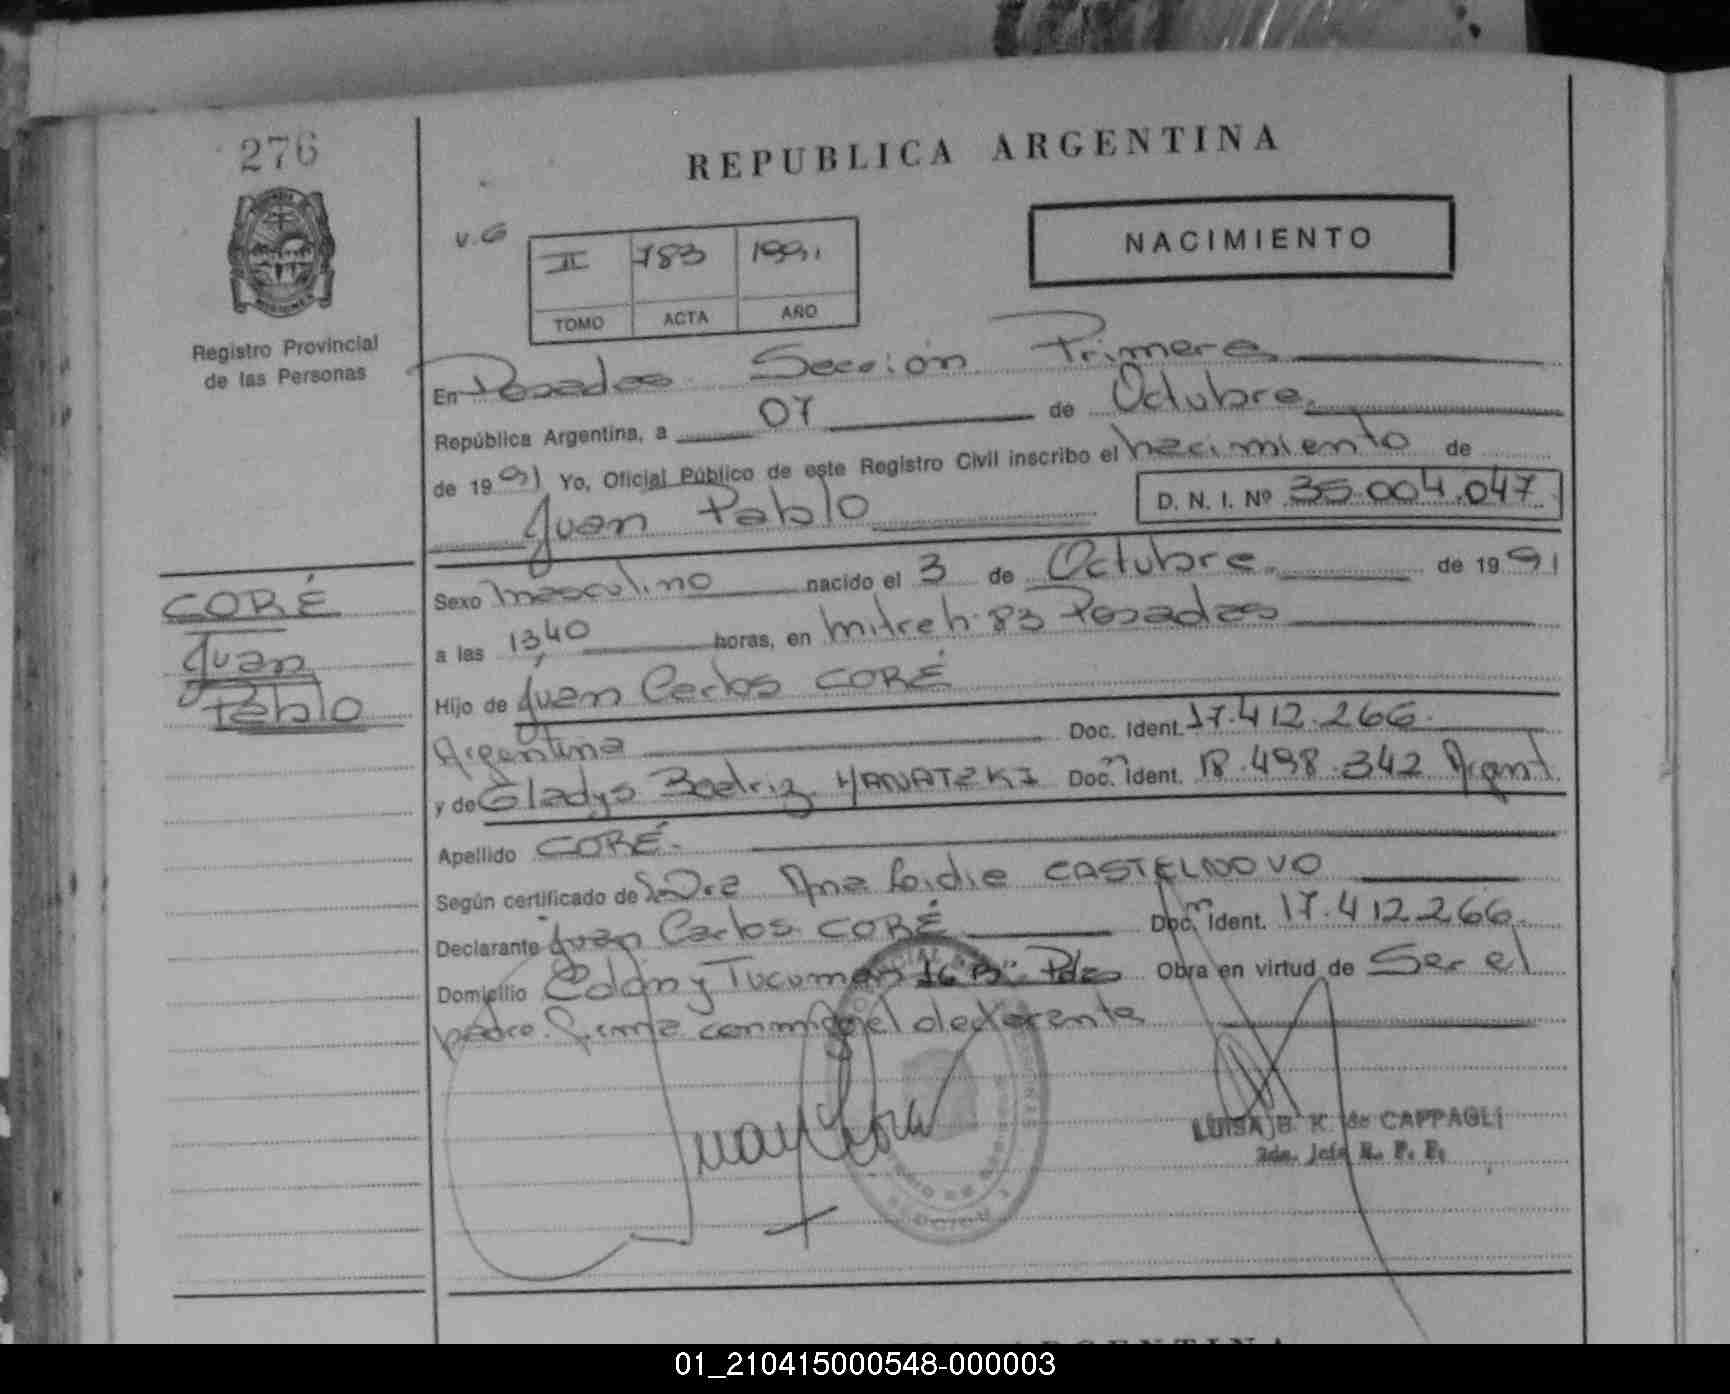 276
REPUBLICA ARGENTINA
V.G
II 783 1991
TOMO ACTA AÑO
NACIMIENTO
Registro Provincial
de las Personas
En Posadas Sección Primera
República Argentina, a 07 de Octubre
de 1991 Yo, Oficial Público de este Registro Civil inscribo el nacimiento de
Juan Pablo
D. N. I. Nº 35.004.047
CORÉ
Juan
Pablo
Sexo masculino nacido el 3 de Octubre de 1991
a las 13,40 horas, en mitre h. 83 Posadas
Hijo de Juan Carlos CORÉ
Argentina Doc. Ident. 17.412.266.
y de Gladys Beatriz YANATZKI Doc. Ident. 18.498.342 Argent
Apellido CORÉ.
Según certificado de Dra Ana Lidia CASTELNOVO
Declarante Juan Carlos CORÉ Doc. Ident. 17.412.266.
Domicilio Colón y Tucuman 16 "B" Pdas Obra en virtud de Ser el
padre. firma conmigo el declarante
LUISA B. K. de CAPPAGLI
2da. Jefe R. P. P.
ARGENTINA
01_210415000548-000003